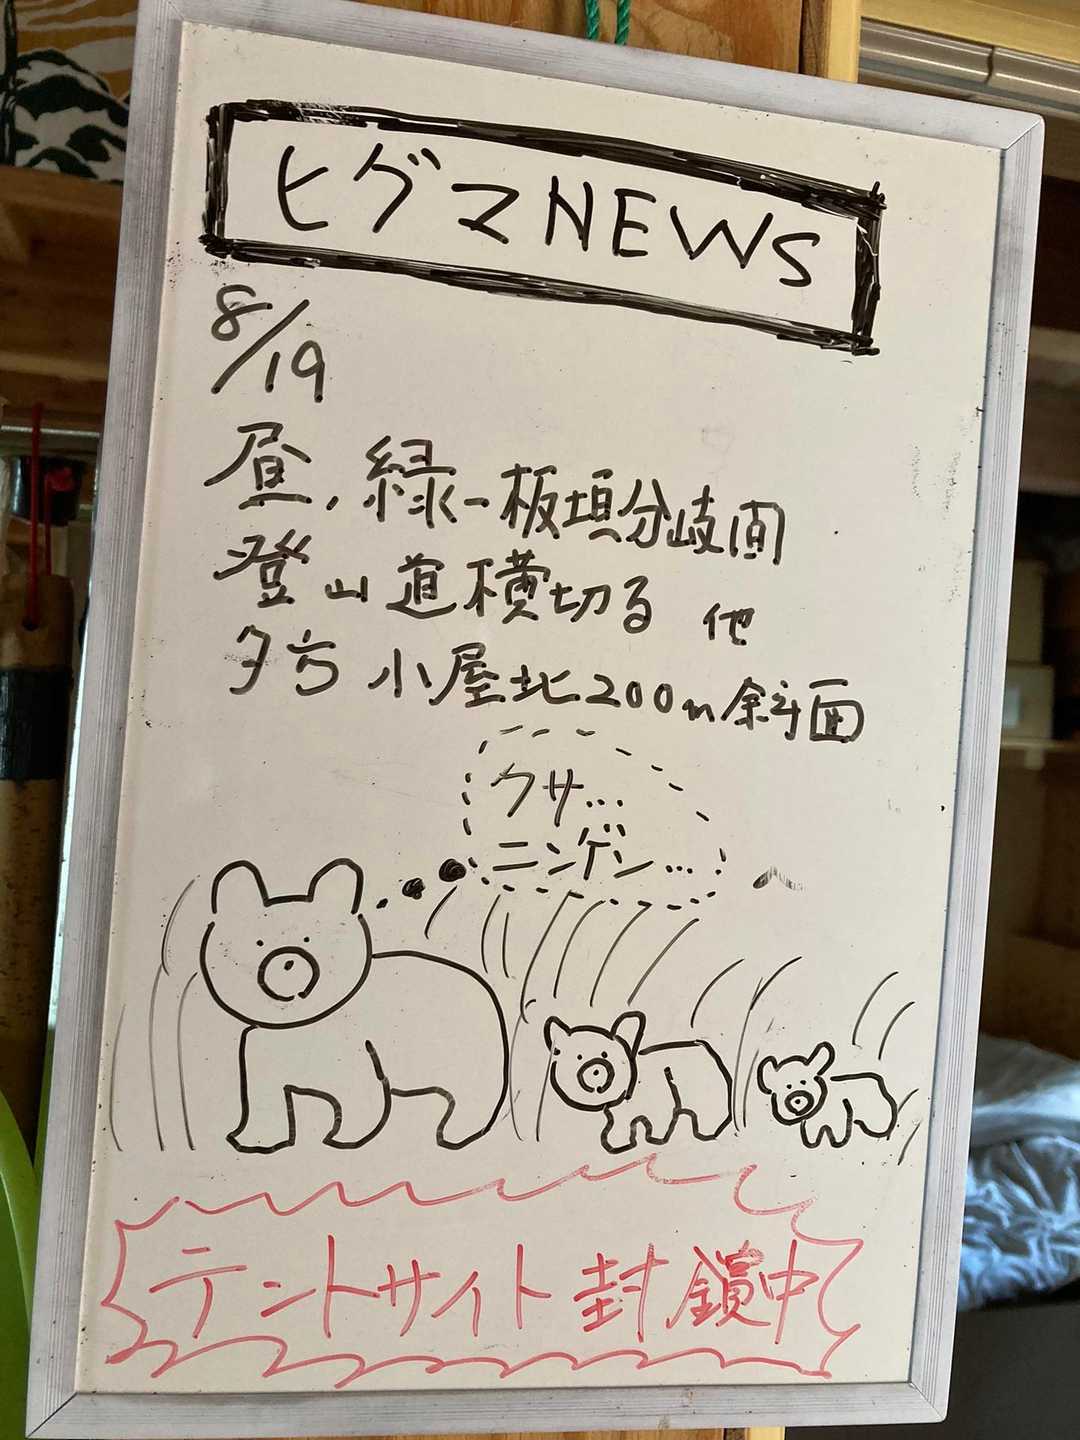 ヒグマNEWS
8/19
昼、緑ー板垣分岐間
登山道横切る 他
夕方 小屋北200m斜面
クサ…
ニンゲン…
テントサイト封鎖中